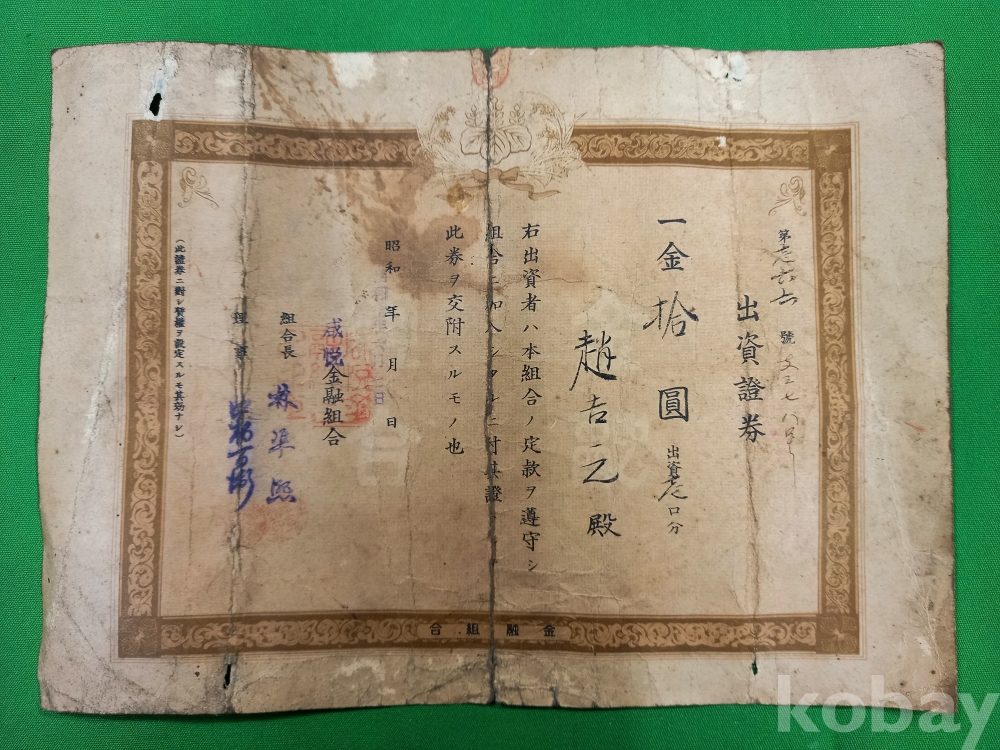 出資證券
第 號
一金拾圓 出資 口分
趙吉之殿
右出資者ハ本組合ノ定款ヲ遵守シ
組合ニ加入シタルニ付其證
此券ヲ交附スルモノ也
昭和 年 月 日
咸悦金融組合
組合長 林準熙
理事
(此證券ニ對シ質權ヲ設定スルモ其効ナシ)
金融組合
kobay